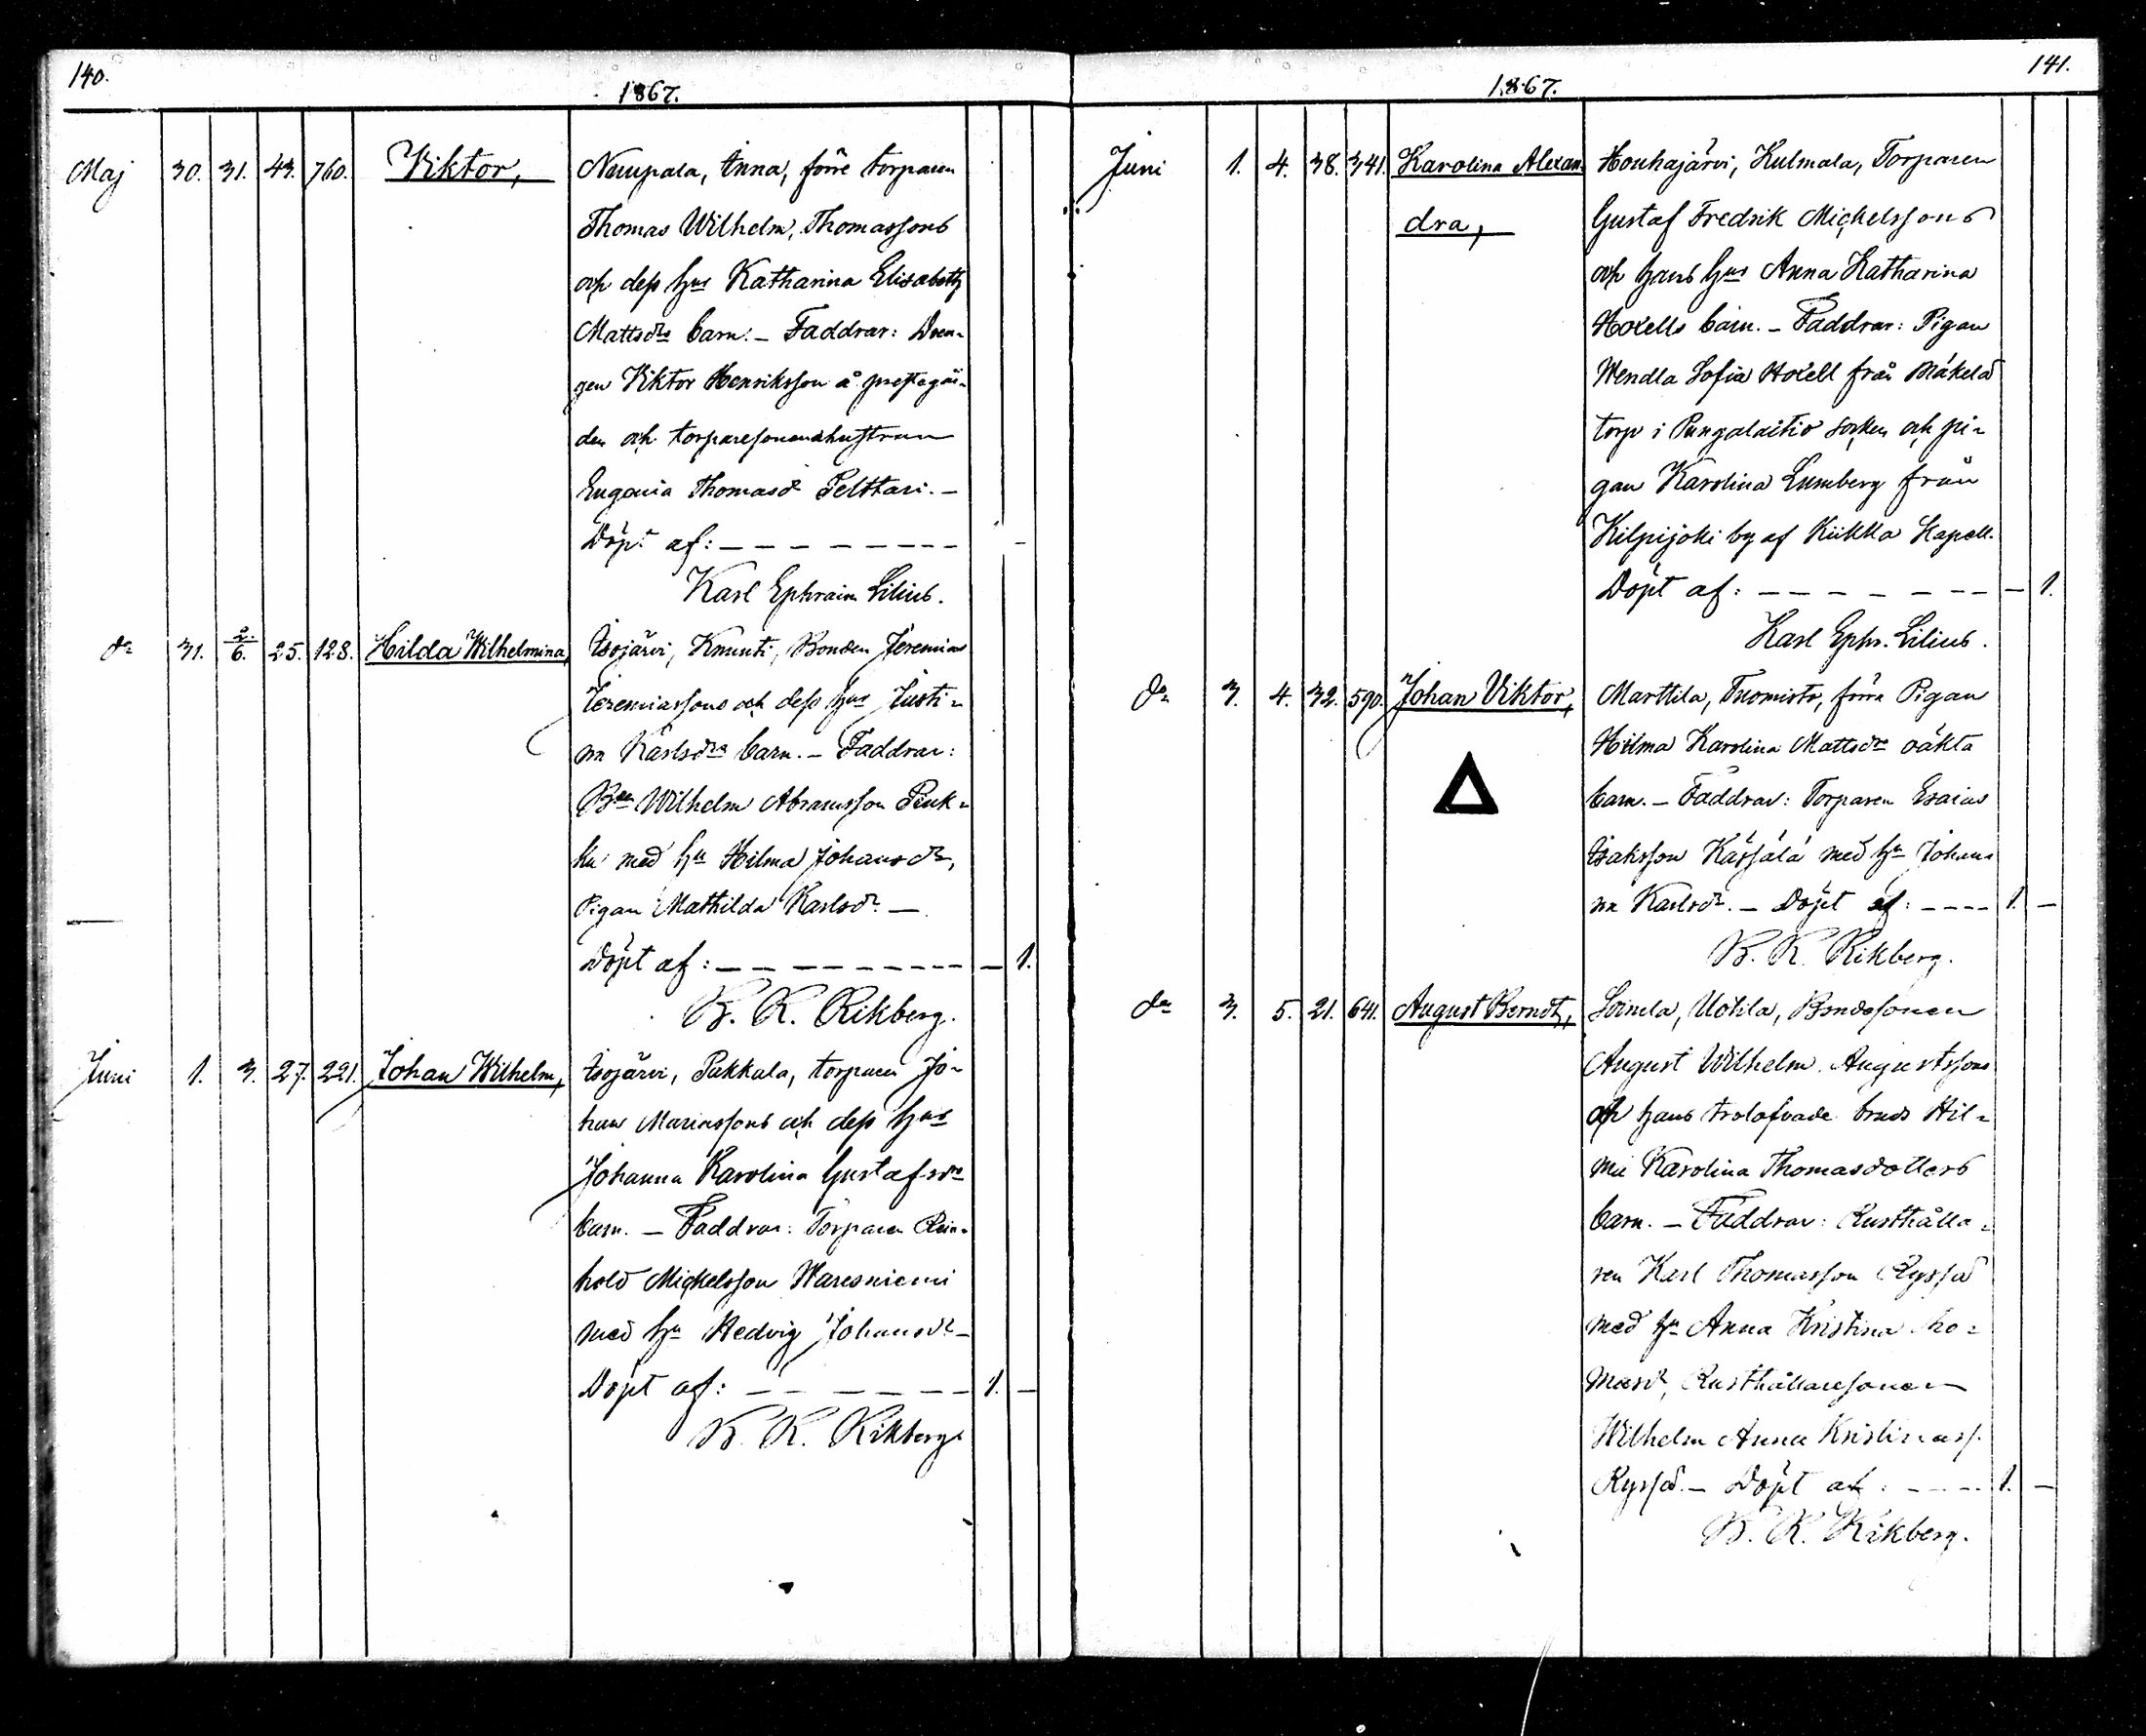 140.
1867.
Maj 30. 31. 43. 760. Viktor, Naupala, Anna, förre torparen
Thomas Wilhelm Thomassons
och dess hus Katharina Elisabeth
Mattsdrs barn. – Faddrar: Dren-
gen Viktor Henriksson å prestegår-
den och torparesonenshustrun
Eugenia Thomasd. Pelttari. –
Döpt af: – – – – – – – – –
Karl Ephraim Lilius.
do 31. 2/6. 25. 128. Hilda Wilhelmina, Isojärvi, Knuuti, Bonden Jeremias
Jeremiassons och dess hus Justi-
na Karlsdrs barn. – Faddrar:
Bden Wilhelm Abramsson Penk-
ku med hu Hilma Johansdr,
Pigan Mathilda Karlsdr. –
Döpt af: – – – – – – – – – – 1.
B. R. Rikberg.
Juni 1. 3. 27. 221. Johan Wilhelm, Isojärvi, Pukkala, torparen Jo-
han Mariassons och dess hus
Johanna Karolina Gustafsdrs
barn. – Faddrar: Torparen Rein-
hold Mickelsson Waresniemi
med hu Hedvig Johansdr –
Döpt af: – – – – – – – 1. –
B. R. Rikberg.
141.
1867.
Juni 1. 4. 38. 341. Karolina Alexan- Houhajärvi, Kulmala, Torparen
dra, Gustaf Fredrik Mickelssons
och hans hus Anna Katharina
Hoxells barn. – Faddrar: Pigan
Wendla Sofia Hoxell från Mäkelä
torp i Pungalaitio socken och pi-
gan Karolina Lumberg från
Kilpijoki by af Kiikka Kapell.
Döpt af: – – – – – – – – 1.
Karl Ephr. Lilius.
do 3. 4. 32. 590. Johan Viktor, Marttila, Tuomisto, förra Pigan
Hilma Karolina Mattsdrs oäkta
barn. – Faddrar: Torparen Esaias
Isaksson Kässälä med hu Johan-
na Karlsdr. – Döpt af: – – – – 1. –
B. R. Rikberg.
do 3. 5. 21. 641. August Berndt, Soinila, Uotila, Bondesonen
August Wilhelm Augustssons
och hans trolofvade bruds Hil-
ma Karolina Thomasdotters
barn. – Faddrar: Rusthålla-
ren Karl Thomasson Ryssä
med hu Anna Kristina Tho-
masdr, Rusthållaresonen
Wilhelm Anna Kristinass.
Ryssä. – Döpt af: – – – – 1. –
B. R. Rikberg.